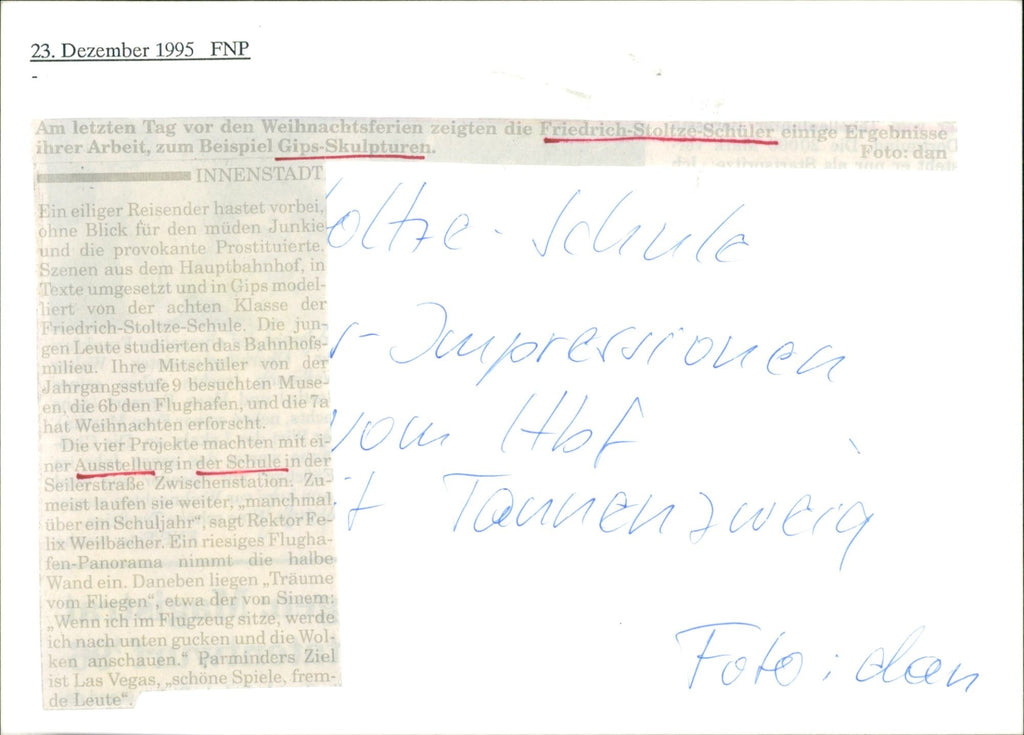 23. Dezember 1995 FNP
-
Am letzten Tag vor den Weihnachtsferien zeigten die Friedrich-Stoltze-Schüler einige Ergebnisse
ihrer Arbeit, zum Beispiel Gips-Skulpturen.
Foto: dan
INNENSTADT
Ein eiliger Reisender hastet vorbei,
ohne Blick für den müden Junkie
und die provokante Prostituierte.
Szenen aus dem Hauptbahnhof, in
Texte umgesetzt und in Gips model-
liert von der achten Klasse der
Friedrich-Stoltze-Schule. Die jun-
gen Leute studierten das Bahnhofs-
milieu. Ihre Mitschüler von der
Jahrgangsstufe 9 besuchten Muse-
en, die 6b den Flughafen, und die 7a
hat Weihnachten erforscht.
Die vier Projekte machten mit ei-
ner Ausstellung in der Schule in der
Seilerstraße Zwischenstation. Zu-
meist laufen sie weiter, „manchmal
über ein Schuljahr“, sagt Rektor Fe-
lix Weilbächer. Ein riesiges Flugha-
fen-Panorama nimmt die halbe
Wand ein. Daneben liegen „Träume
vom Fliegen“, etwa der von Sinem:
„Wenn ich im Flugzeug sitze, werde
ich nach unten gucken und die Wol-
ken anschauen.“ Parminders Ziel
ist Las Vegas, „schöne Spiele, frem-
de Leute“.
oltze-Schule
r-Impressionen
vom Hbf
it Tannenzweig
Foto: dan